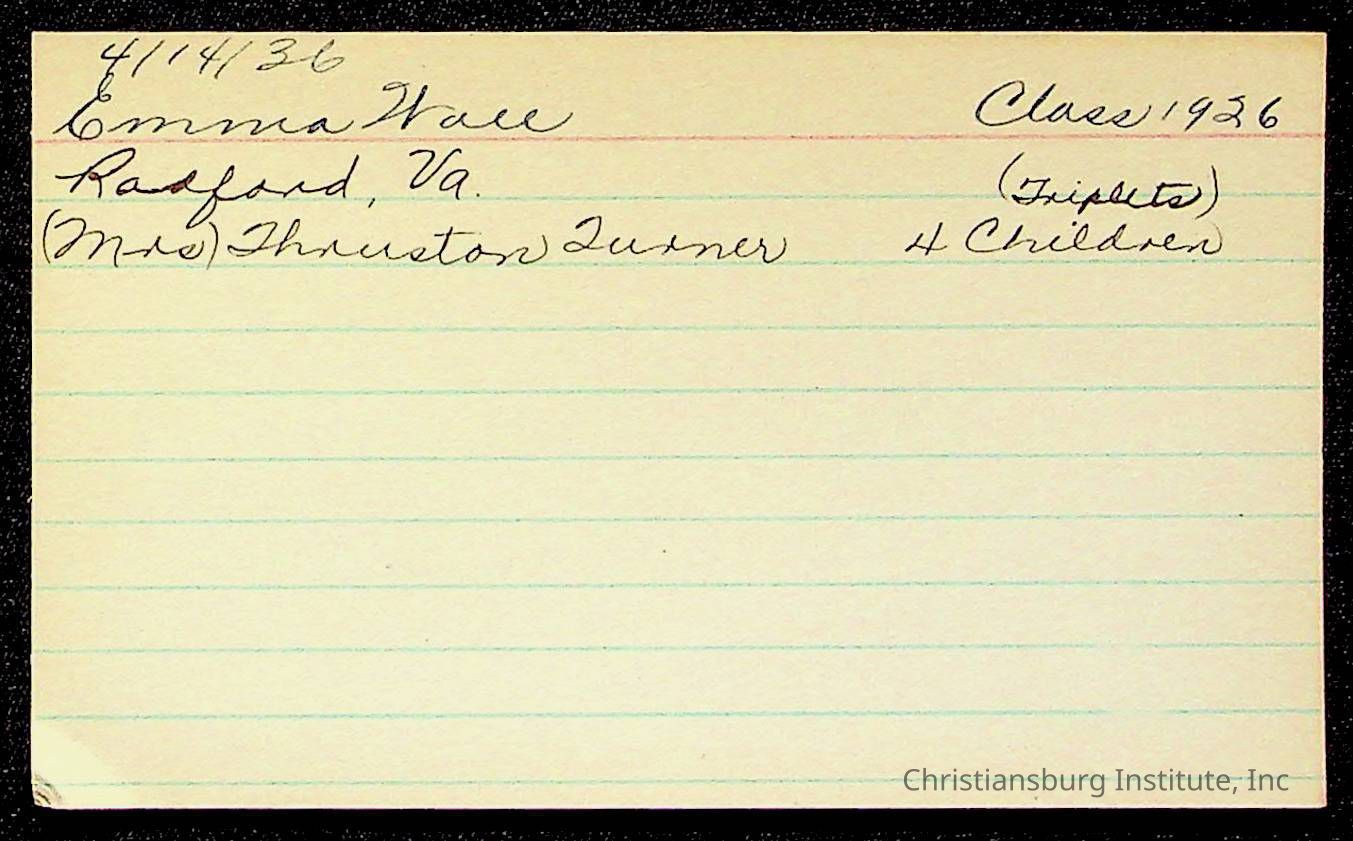 4/14/36
Emma Wall Class 1926
Radford, Va. (Triplets)
(Mrs) Thruston Turner 4 Children
Christiansburg Institute, Inc